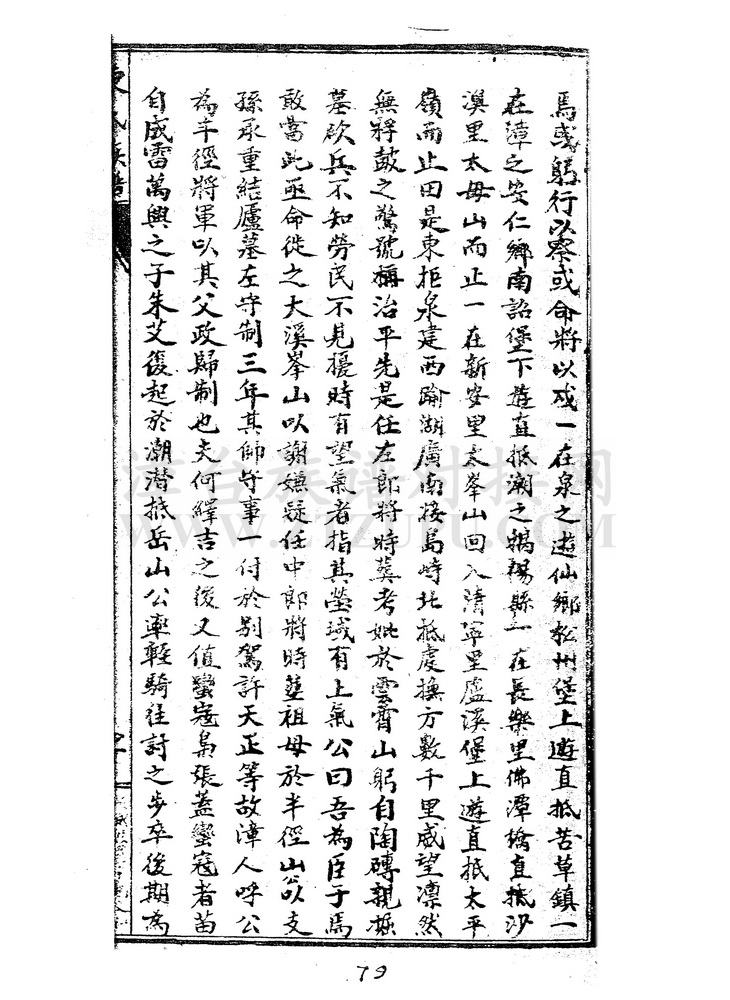 焉或躬行以察或命將以戍一在泉之遊仙鄉松州堡上遊直抵苦草鎮一
在漳之安仁鄉南詔堡下遊直抵潮之揭陽縣一在長樂里佛潭橋直抵沙
澳里太母山而止一在新安里太峯山回入清寧里盧溪堡上遊直抵太平
嶺而止由是東拒泉建西踰湖廣南接島嶼北抵虔撫方數千里威望凛然
無桴鼓之驚號稱治平先是任左郎將時葬考妣於雲霄山躬自陶磚親掘
墓砍兵不知勞民不見擾時有望氣者指其塋域有上氣公曰吾為臣子焉
敢當此亟命徙之大溪峯山以謝嫌疑任中郎將時塟祖母於半徑山公以支
孫承重結廬墓左守制三年其帥守事一付於别駕許天正等故漳人呼公
為半徑將軍以其父政歸制也夫何繹吉之後又值蠻寇梟張蓋蠻寇者苗
自成雷萬興之子朱艾復起於潮潛抵岳山公率輕騎往討之步卒後期為
漳台族譜對接網
WWW.ZTZUPU.COM
79